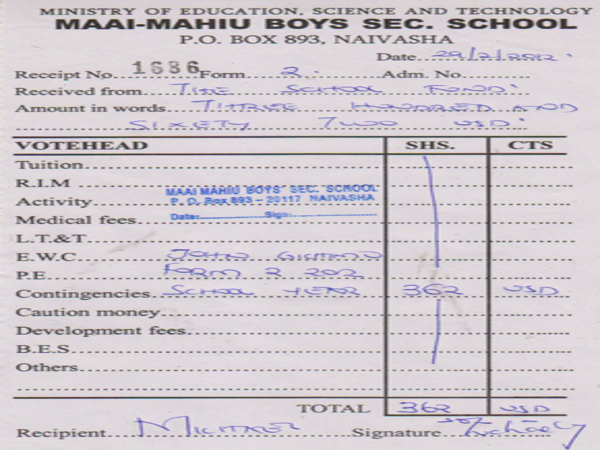 MINISTRY OF EDUCATION, SCIENCE AND TECHNOLOGY
MAAI-MAHIU BOYS SEC. SCHOOL
P.O. BOX 893, NAIVASHA
Date 29/2/2012
Receipt No. 1686 Form 2. Adm. No.
Received from THE SCHOOL FUND
Amount in words THHREE HUNDRED AND
SIXETY TWO USD
VOTEHEAD SHS. CTS
Tuition
R.I.M
MAAI MAHIU BOYS' SEC. SCHOOL
Activity
P. O. Box 893 - 20117 NAIVASHA
Medical fees
Date: Sign:
L.T.&T
E.W.C JOHN
P.E. FORM 2 202
Contingencies SCHOOL YEAR 362 USD
Caution money
Development fees
B.E.S
Others
TOTAL 362 USD
Recipient Signature